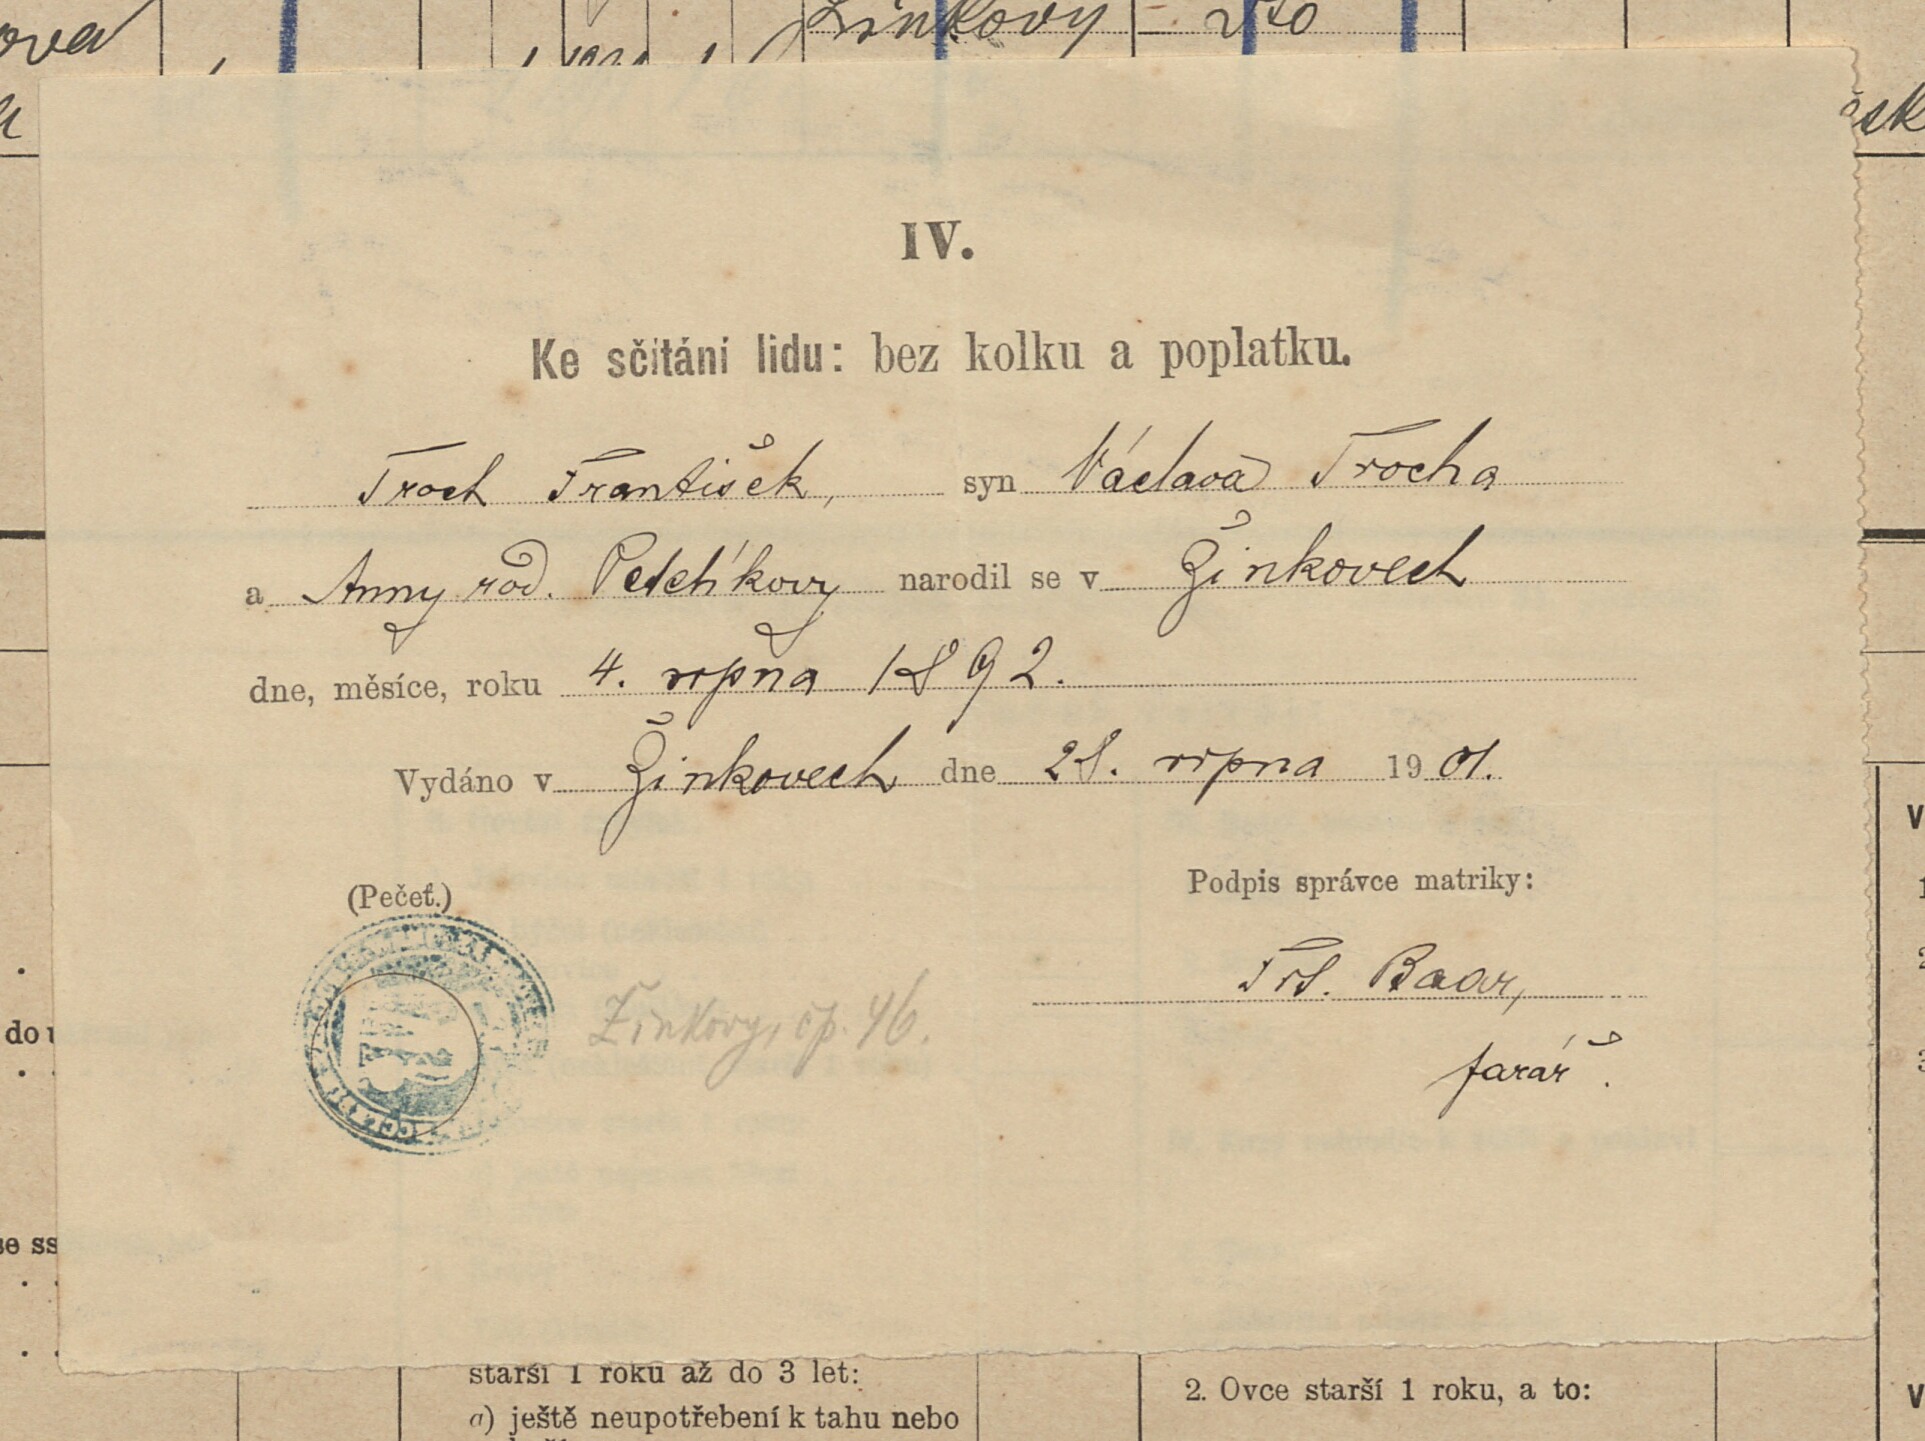 ova
Žinkovy – vto
k
česk
IV.
Ke sčítání lidu: bez kolku a poplatku.
Troch František, syn Václava Trocha
a Anny rod. Petelíkovy narodil se v Žinkovech
dne, měsíce, roku 4. srpna 1892.
Vydáno v Žinkovech dne 28. srpna 1901.
(Pečeť.)
Podpis správce matriky:
Frt. Baar,
farář.
Žinkovy, čp. 46.
do u
se ss
V
1
2
3
starší 1 roku až do 3 let:
a) ještě neupotřebení k tahu nebo
2. Ovce starší 1 roku, a to:
V